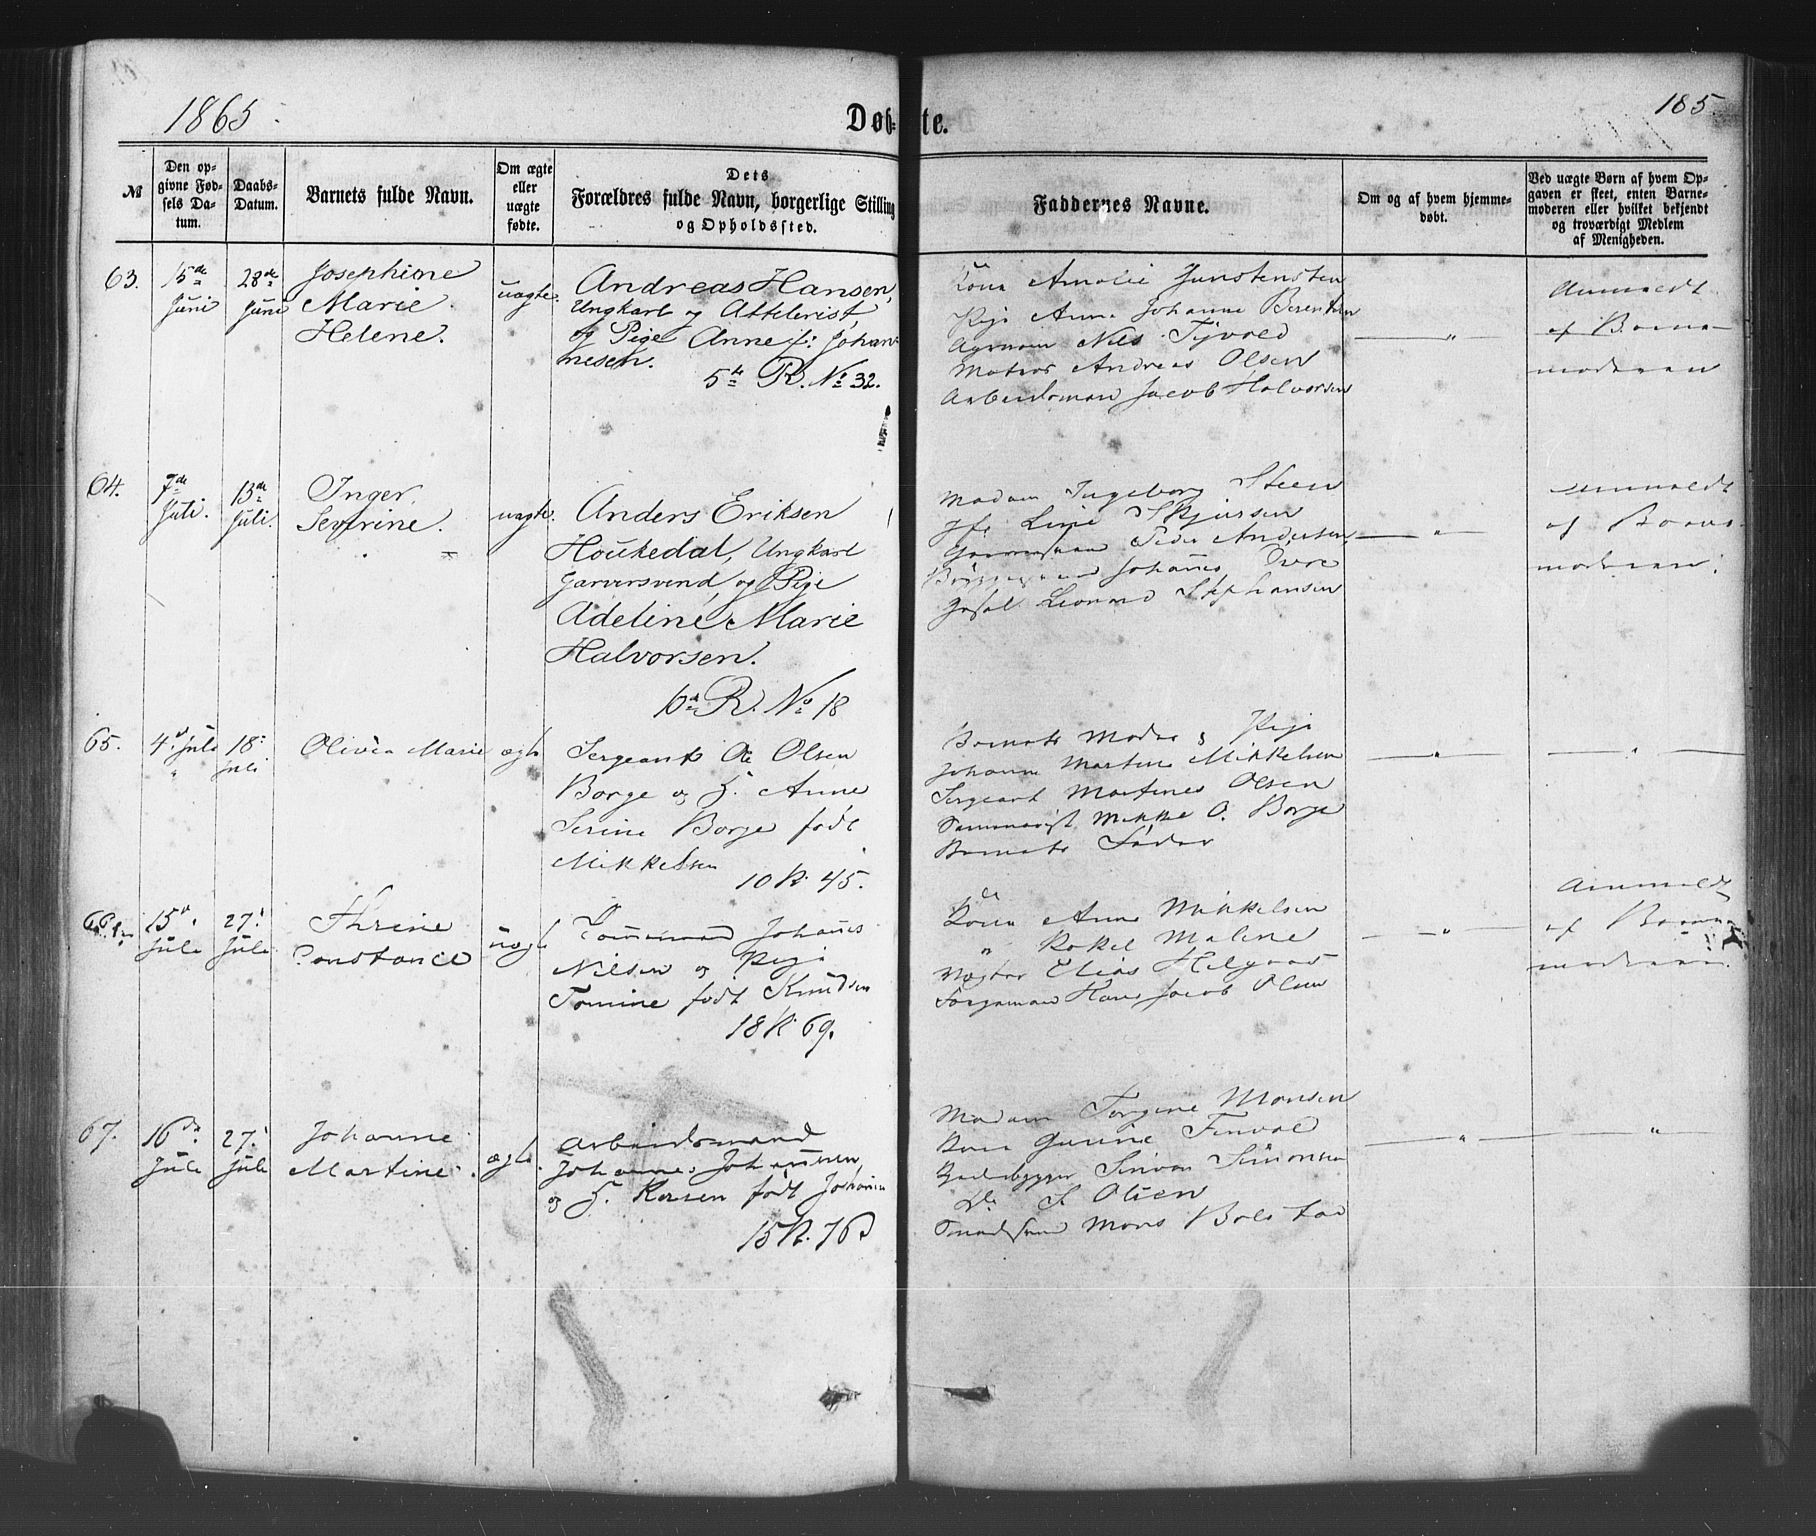 1865.
Døbte.
185.
№
Den opgivne Fødsels Datum.
Daabs-Datum.
Barnets fulde Navn.
Om ægte eller uægte fødte.
Dets
Forældres fulde Navn, borgerlige Stilling
og Opholdssted.
Faddernes Navne.
Om og af hvem hjemmedøbt.
Ved uægte Børn af hvem Opgaven er skeet, enten Barnemoderen eller hvilket bekjendt og troværdigt Medlem af Menigheden.
63.
15de Juni
28de Juni
Josephine
Marie
Helene.
uægte.
Andreas Hansen,
Ungkarl og Attelerist,
og Pige Anne J: Johan-
nesen.
5te R. No 32.
Kona Amalie
Pige Anna Johanne Berentsen
Nils
Matros Andreas Olsen
Arbeidsmand Jacob Halvorsen
"
Anmeldt
af Barne-
moderen
64.
7de Juli.
13de Juli.
Inger
Severine.
uægte.
Anders Eriksen
Houkedal, Ungkarl
Garversvend, og Pige
Adeline Marie
Halvorsen.
10de R. No 18
Madam Ingeborg Steen
Jfr Line
Peder Andersen,
Johannes
Leonard Stephansen
"
Anmeldt
af Barne-
moderen.
65.
4de Juli
"
18: Juli
Olivia Marie
ægte
Sergeant Ole Olsen
Borge og H. Anne
Serine Borge født
Mikkelsen
10 R. 45.
Barnets Moder & Pige
Johanne Martine Mikkelsen
Sergeant Martines Olsen
Mikkel O. Borge
Barnets Fader
"
"
66.
15de Jule
27. Jule
Thrine
Constance
uægte
Johannes
Nilsen og Pige
Tomine født Knudsen
18 R. 69.
Kona Anne Mikkelsen
" Rakel Maline
Vægter Elias
Hans Jacob Olsen
"
Anmeldt
af Barne-
moderen.
67.
16de Jule
27. Jule
Johanne
Martine.
ægte.
Arbeidsmand
Johannes Johannesen
og H. født
15 R. 76
Madam Torgine Monsen
Kona Gunne
Simon Simonsen
Do S Olsen
Mons
"
"